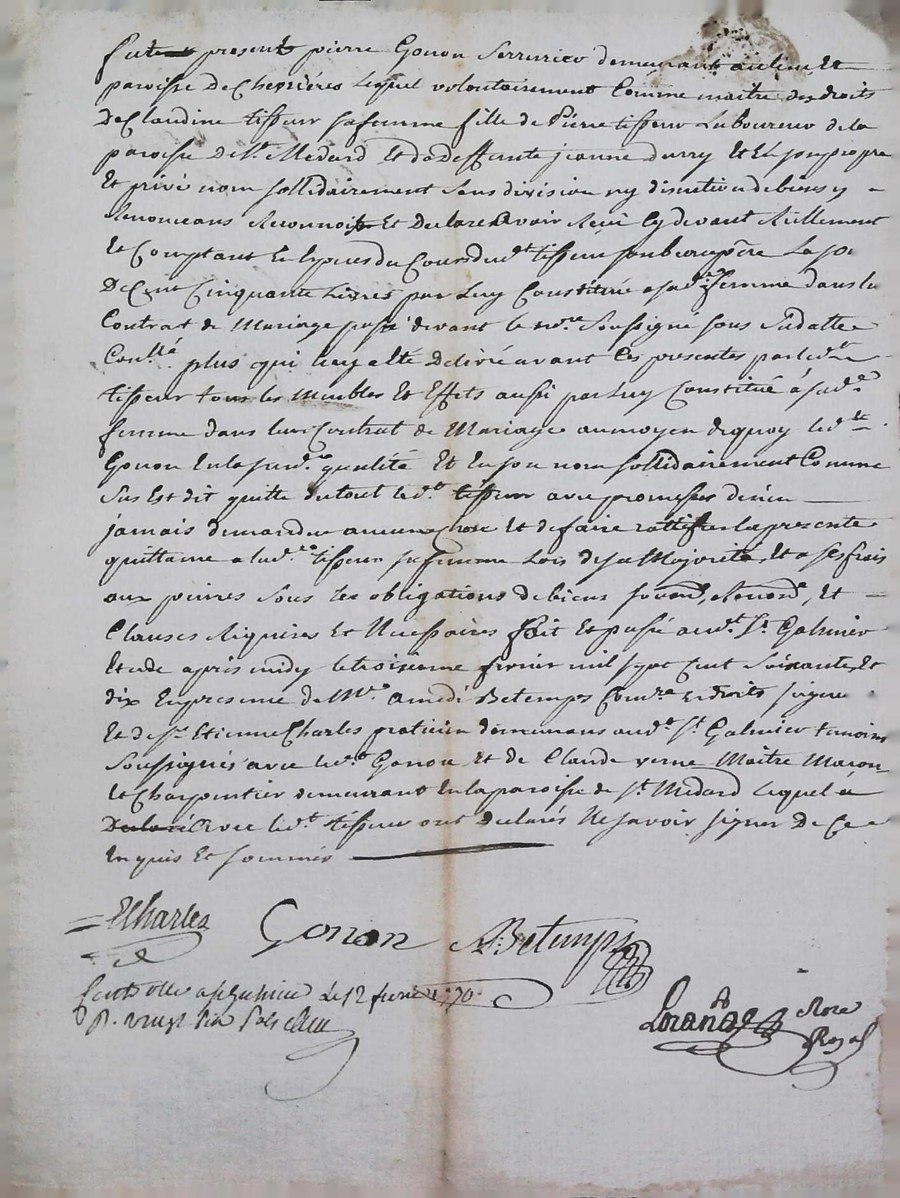 fut present pierre Gonon Serrurier demeurant au lieu Et
paroisse De Chevrières Lequel volontairement Comme maitre des droits
De Claudine tisseur sa femme fille de Pierre tisseur Laboureur de la
paroisse de St. Medard Et de deffunte jeanne durry Et En son propre
Et privé nom sollidairement sans division ny discution de biens y
Renonceans Reconnoit Et Declare avoir Reçu Cy devant Réellement
Et Comptant En Especes du Cours du dt tisseur son beaupere La so
De Cent Cinquante Livres par Luy Constituée a sa de femme dans le
Contrat de Mariage passé devant le nore Soussigné sous sa datte
Conllé plus qui luy a été delivré avant Ces presentes par le dt
tisseur tous les Meubles Et Effets aussi par Luy Constitué à sa de
femme dans leur Contrat de Mariage au moyen de quoy le dt
Gonon En la sus de qualité Et En son nom sollidairement Comme
Sus Est dit quitte du tout le dt tisseur avec promesses de n'en
jamais demander aucune Chose Et de faire rattiffier la presente
quittance a la de tisseur sa femme Lors de sa Majorité Et a ses frais
aux peines sous les obligations de biens soumon, Renonon, Et
Clauses Requises Et Necessaires fait Et passé au dt St Galmier
Etude après midy le troisieme fevrier mil sept Cent Soixante Et
dix En presence de Me amedé Betemps Conre En droits signé
Et de sr Etienne Charles praticien demeurans au dt St Galmier temoins
Soussignés avec le dt Gonon Et de Claude verne Maitre Macon
Et Charpentier demeurant En la paroisse de St Medard Lequel a
Declaré avec le dt tisseur ont declarés Ne savoir signer De Ce
Enquis Et sommés
ECharles Gonon A. Betemps
Controllé a St Galmier Le 12 fevrier 1770
R. vingt six sols
Lorande Nore
Royal